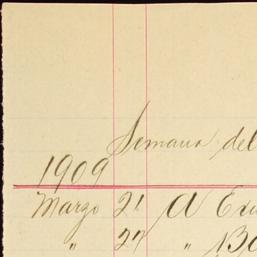 Semana del
1909
Marzo 21 A
" 27 "